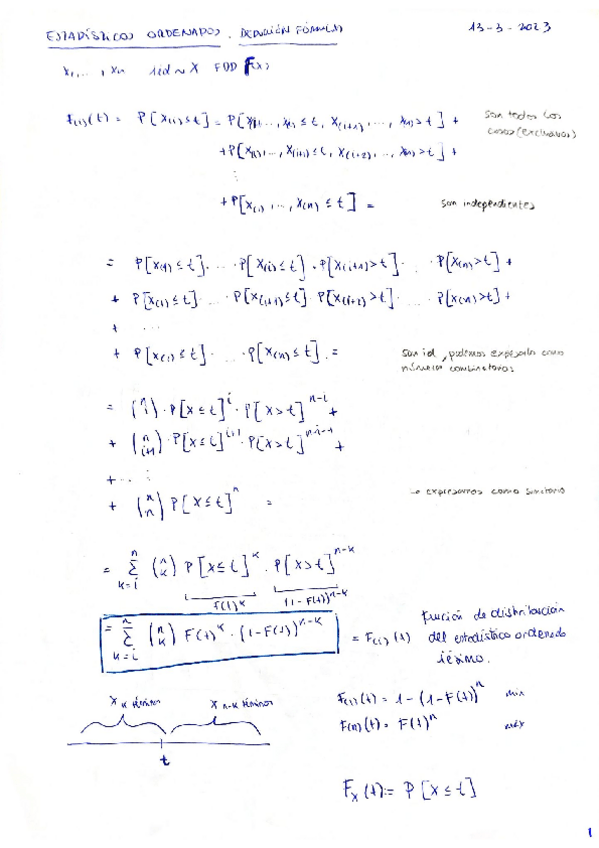 ESTADÍSTICOS ORDENADOS. DEDUCIÓN FÓRMULAS 13-3-2023
X₁, ..., Xₙ iid ~ X FDD F(x)
F₍ᵢ₎(t) = P[X₍ᵢ₎ ≤ t] = P[X₍₁₎, ..., X₍ᵢ₎ ≤ t, X₍ᵢ₊₁₎, ..., X₍ₙ₎ > t] + son todos los
+ P[X₍₁₎, ..., X₍ᵢ₊₁₎ ≤ t, X₍ᵢ₊₂₎, ..., X₍ₙ₎ > t] + casos (exclusivos)
⋮
+ P[X₍₁₎, ..., X₍ₙ₎ ≤ t] = son independientes
= P[X₍₁₎ ≤ t] · ... · P[X₍ᵢ₎ ≤ t] · P[X₍ᵢ₊₁₎ > t] · ... · P[X₍ₙ₎ > t] +
+ P[X₍₁₎ ≤ t] · ... · P[X₍ᵢ₊₁₎ ≤ t] · P[X₍ᵢ₊₂₎ > t] · ... · P[X₍ₙ₎ > t] +
+ ...
+ P[X₍₁₎ ≤ t] · ... · P[X₍ₙ₎ ≤ t] = son id, podemos expresarlo como
números combinatorios
= (n i) · P[X ≤ t]^i · P[X > t]^{n-i} +
+ (n i+1) · P[X ≤ t]^{i+1} · P[X > t]^{n-i-1} +
+ ... ⋮
+ (n n) P[X ≤ t]^n = Lo expresamos como sumatorio
= Σ_{k=i}^{n} (n k) P[X ≤ t]^k · P[X > t]^{n-k}
F(t)^k (1-F(t))^{n-k}
= Σ_{k=i}^{n} (n k) F(t)^k · (1-F(t))^{n-k} = F₍ᵢ₎(t) función de distribución
del estadístico ordenado
iésimo.
X k términos X n-k términos F₍₁₎(t) = 1 - (1-F(t))^n min
F₍ₙ₎(t) = F(t)^n máx
t
F_X(t) := P[X ≤ t]
1